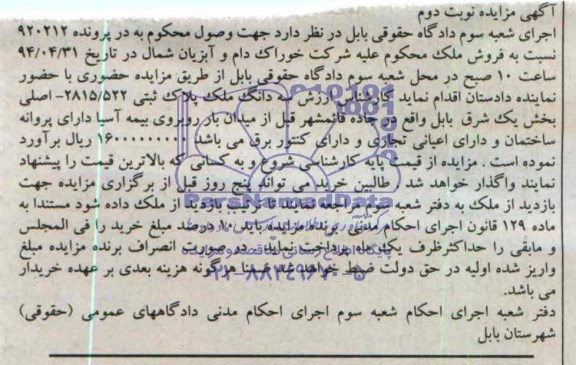 آگهی مزایده نوبت دوم
اجرای شعبه سوم دادگاه حقوقی بابل در نظر دارد جهت وصول محکوم به در پرونده ۹۲۰۲۱۲
نسبت به فروش ملک محکوم علیه شرکت خوراک دام و آبزیان شمال در تاریخ ۹۴/۰۴/۳۱
ساعت ۱۰ صبح در محل شعبه سوم دادگاه حقوقی بابل از طریق مزایده حضوری با حضور
نماینده دادستان اقدام نماید که ارزش سه دانگ ملک پلاک ثبتی ۲۸۱۵/۵۲۲- اصلی
بخش یک شرق بابل واقع در جاده قائمشهر قبل از میدان بار روبروی بیمه آسیا دارای پروانه
ساختمان و دارای اعیانی تجاری و دارای کنتور برق می باشد ریال برآورد
نموده است . مزایده از قیمت پایه کارشناسی شروع و به کسانی که بالاترین قیمت را پیشنهاد
نمایند واگذار خواهد شد . طالبین خرید می تواند پنج روز قبل از برگزاری مزایده جهت
بازدید از ملک به دفتر شعبه مراجعه نمایند تا ترتیب بازدید از ملک داده شود مستندا به
ماده ۱۲۹ قانون اجرای احکام مدنی برنده مزایده باید ۱۰ درصد مبلغ خرید را فی المجلس
و مابقی را حداکثر ظرف یک ماه پرداخت نماید . در صورت انصراف برنده مزایده مبلغ
واریز شده اولیه در حق دولت ضبط خواهد شد ضمنا هرگونه هزینه بعدی بر عهده خریدار
می باشد.
دفتر شعبه اجرای احکام شعبه سوم اجرای احکام مدنی دادگاههای عمومی (حقوقی)
شهرستان بابل
ParsNamadData
پایگاه اطلاع رسانی مناقصه و مزایده
۰۲۱-۸۸۳۴۹۶۷۰-۵